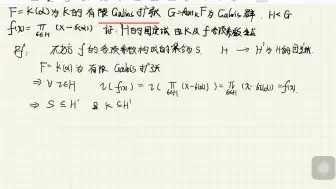 F = K(α)为K的有限Galois扩张, G=Aut_K F为Galois群, H<G
f(x) = ∏_{σ∈H} (x-σ(α)) 证: H的固定域 由K及f的各次系数生成
Pf: 不妨 f的各次系数构成的集合为S. H → H'为H的固定域
F=K(α)为 有限 Galois扩张
⇒ ∀ τ∈H τ(f(x)) = τ(∏_{σ∈H} (x-σ(α))) = ∏_{σ∈H} (x-σ(α)) = f(x).
⇒ S ⊆ H' 且 K ⊆ H'